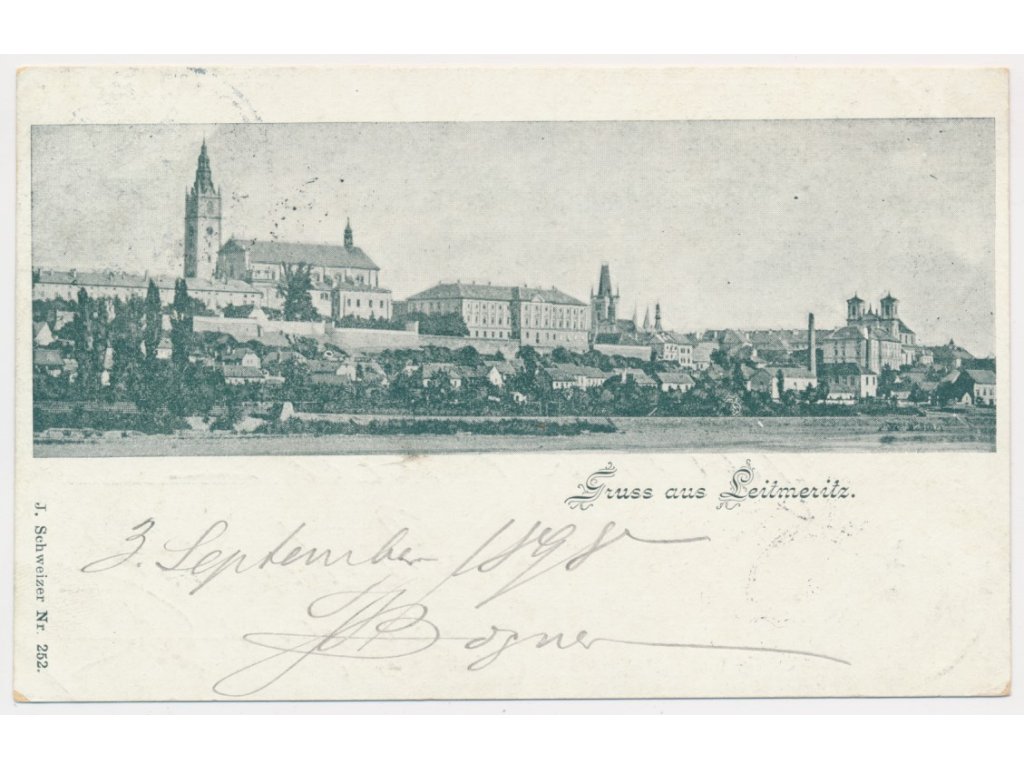 Gruss aus Leitmeritz.
3. September 1898
Bogner
J. Schweizer Nr. 252.